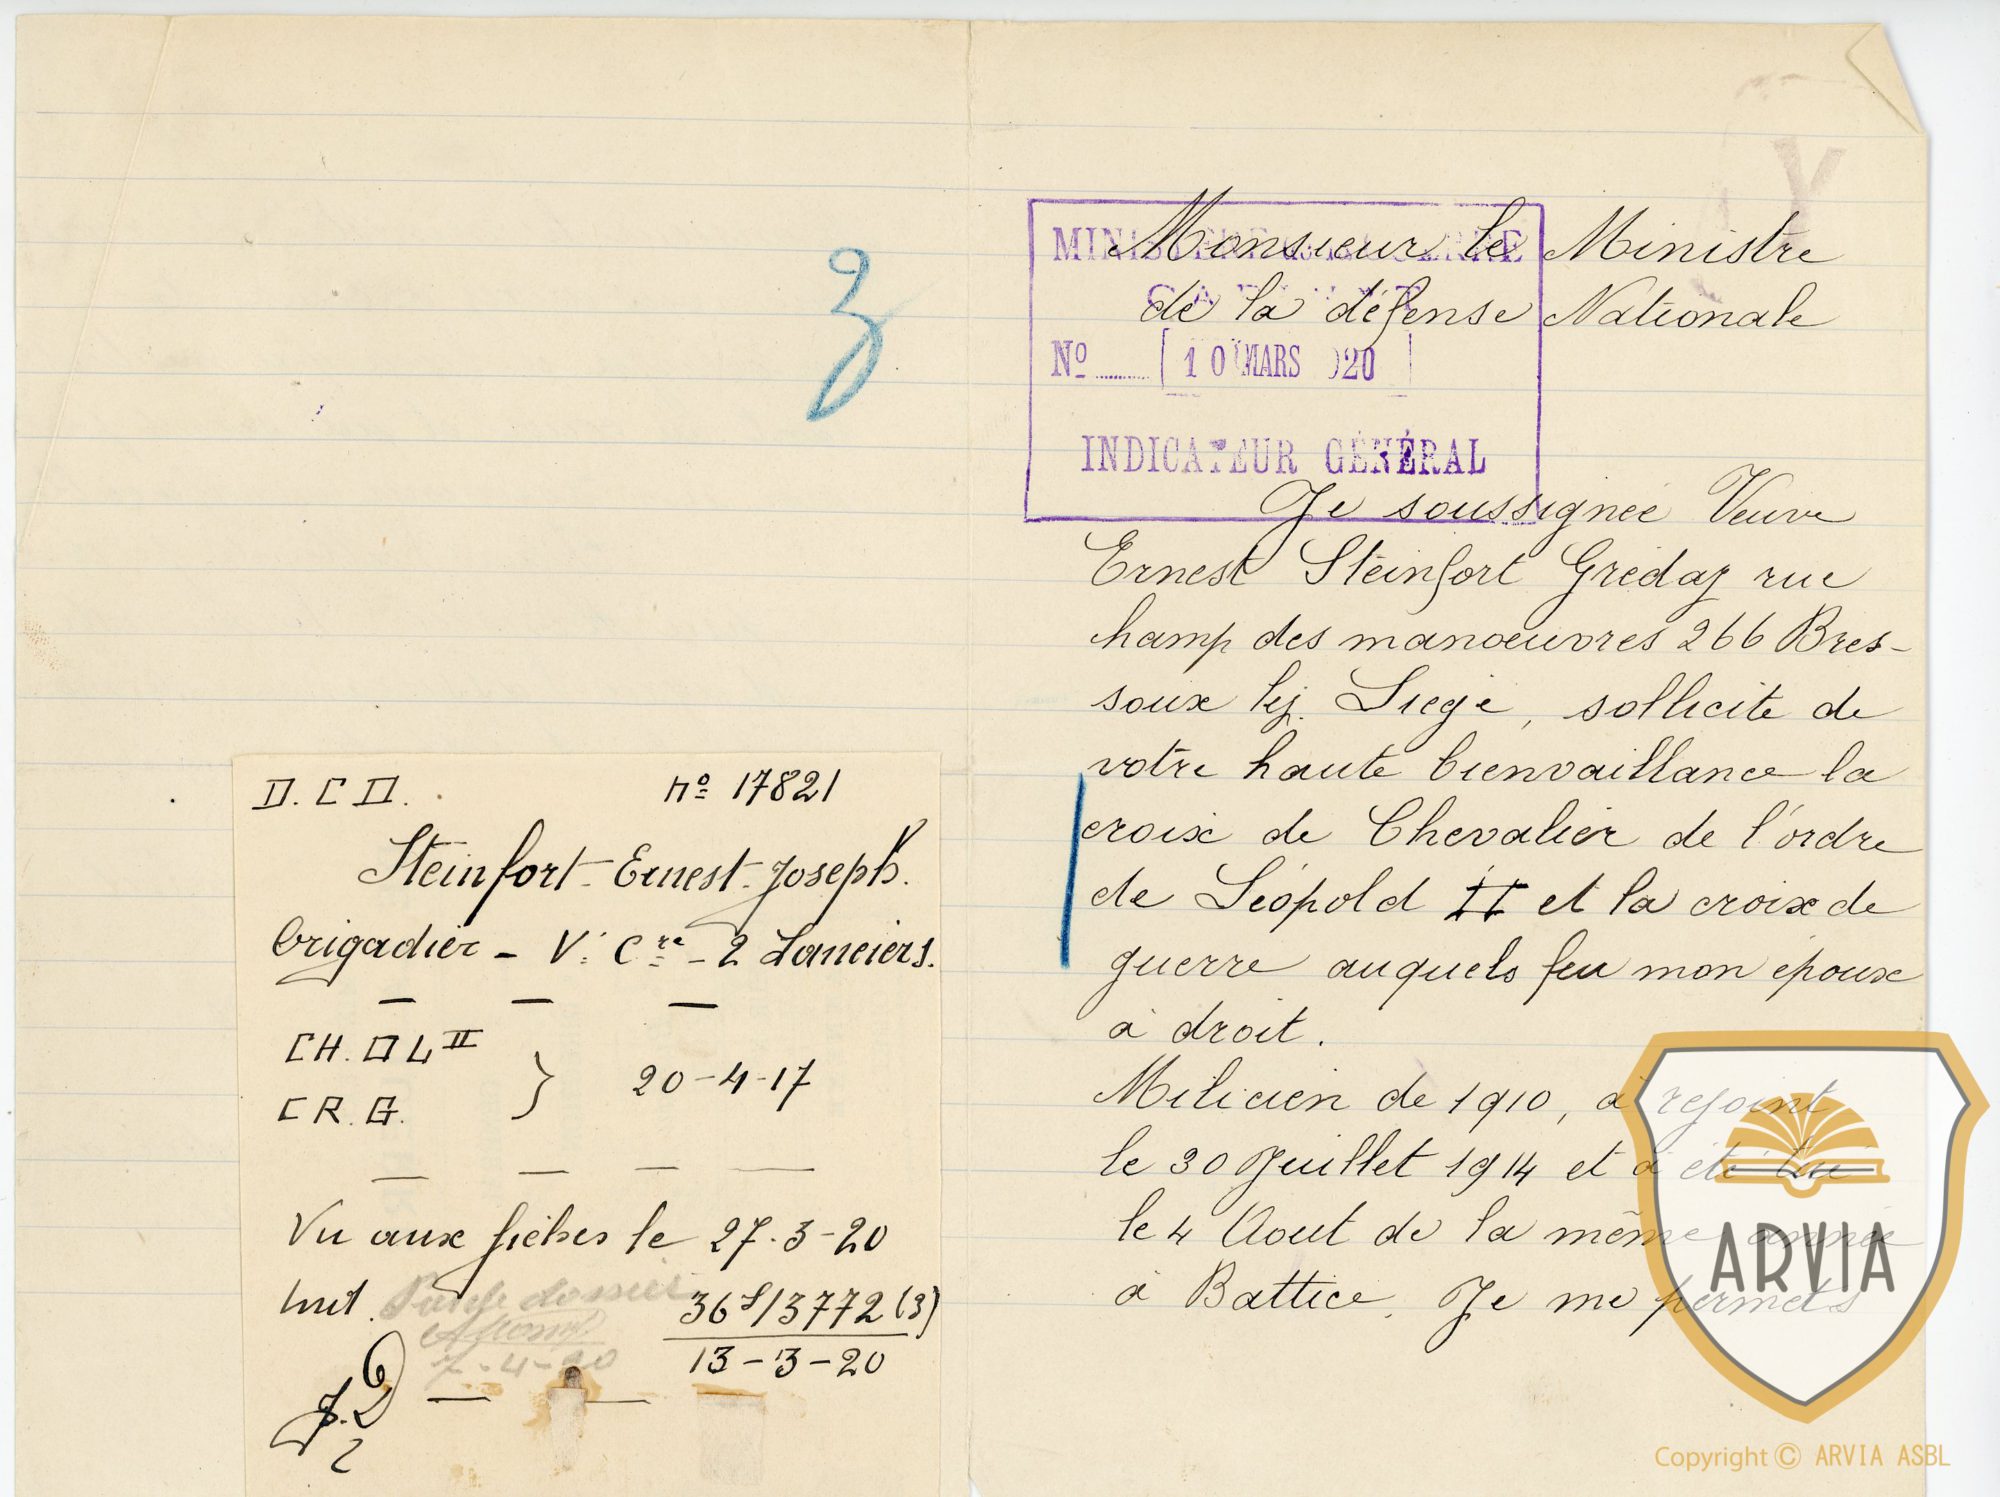 3
D.C.D. No 17821
Steinfort-Ernest-Joseph.
brigadier - V: Cre - 2 Lanciers.
CH. O L II
CR. G. } 20-4-17
Vu aux fiches le 27-3-20
dossier
36 S/3772 (3)
7-4-20
13-3-20
J.D
MINISTÈRE DE LA GUERRE
CABINET
No 10 MARS 1920
INDICATEUR GÉNÉRAL
Monsieur le Ministre
de la défense Nationale
Je soussignée Veuve
Ernest Steinfort Grédaz rue
champ des manoeuvres 266 Bres-
soux lez. Liege, sollicite de
votre haute bienvaillance la
croix de Chevalier de l'ordre
de Léopold II et la croix de
guerre auquels feu mon époux
a droit.
Milicien de 1910, a rejoint
le 30 Juillet 1914 et a été tué
le 4 Aout de la même année
à Battice. Je me permets
ARVIA
Copyright © ARVIA ASBL